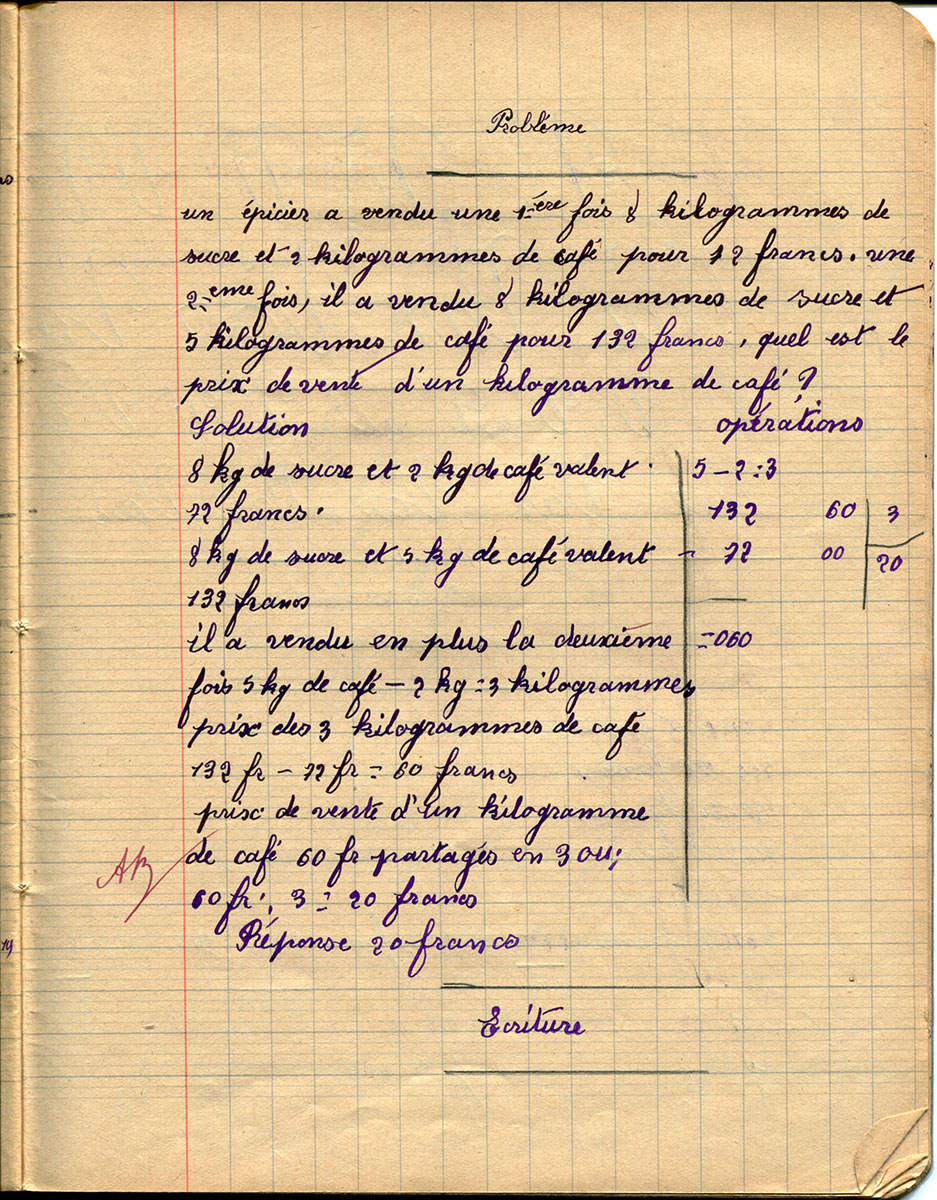 Problème
un épicier a vendu une 1ère fois 8 kilogrammes de
sucre et 2 kilogrammes de café pour 72 francs. une
2eme fois, il a vendu 8 kilogrammes de sucre et
5 kilogrammes de café pour 132 francs, quel est le
prix de vente d'un kilogramme de café ?
Solution opérations
8 kg de sucre et 2 kg de café valent 5 - 2 = 3
72 francs. 132 60 3
8 kg de sucre et 5 kg de café valent - 72 00 20
132 francs
il a vendu en plus la deuxième = 060
fois 5 kg de café - 2 kg = 3 kilogrammes
prix des 3 kilogrammes de café
132 fr - 72 fr = 60 francs
prix de vente d'un kilogramme
de café 60 fr partagés en 3 ou;
60 fr : 3 = 20 francs
Réponse 20 francs
AB
Ecriture